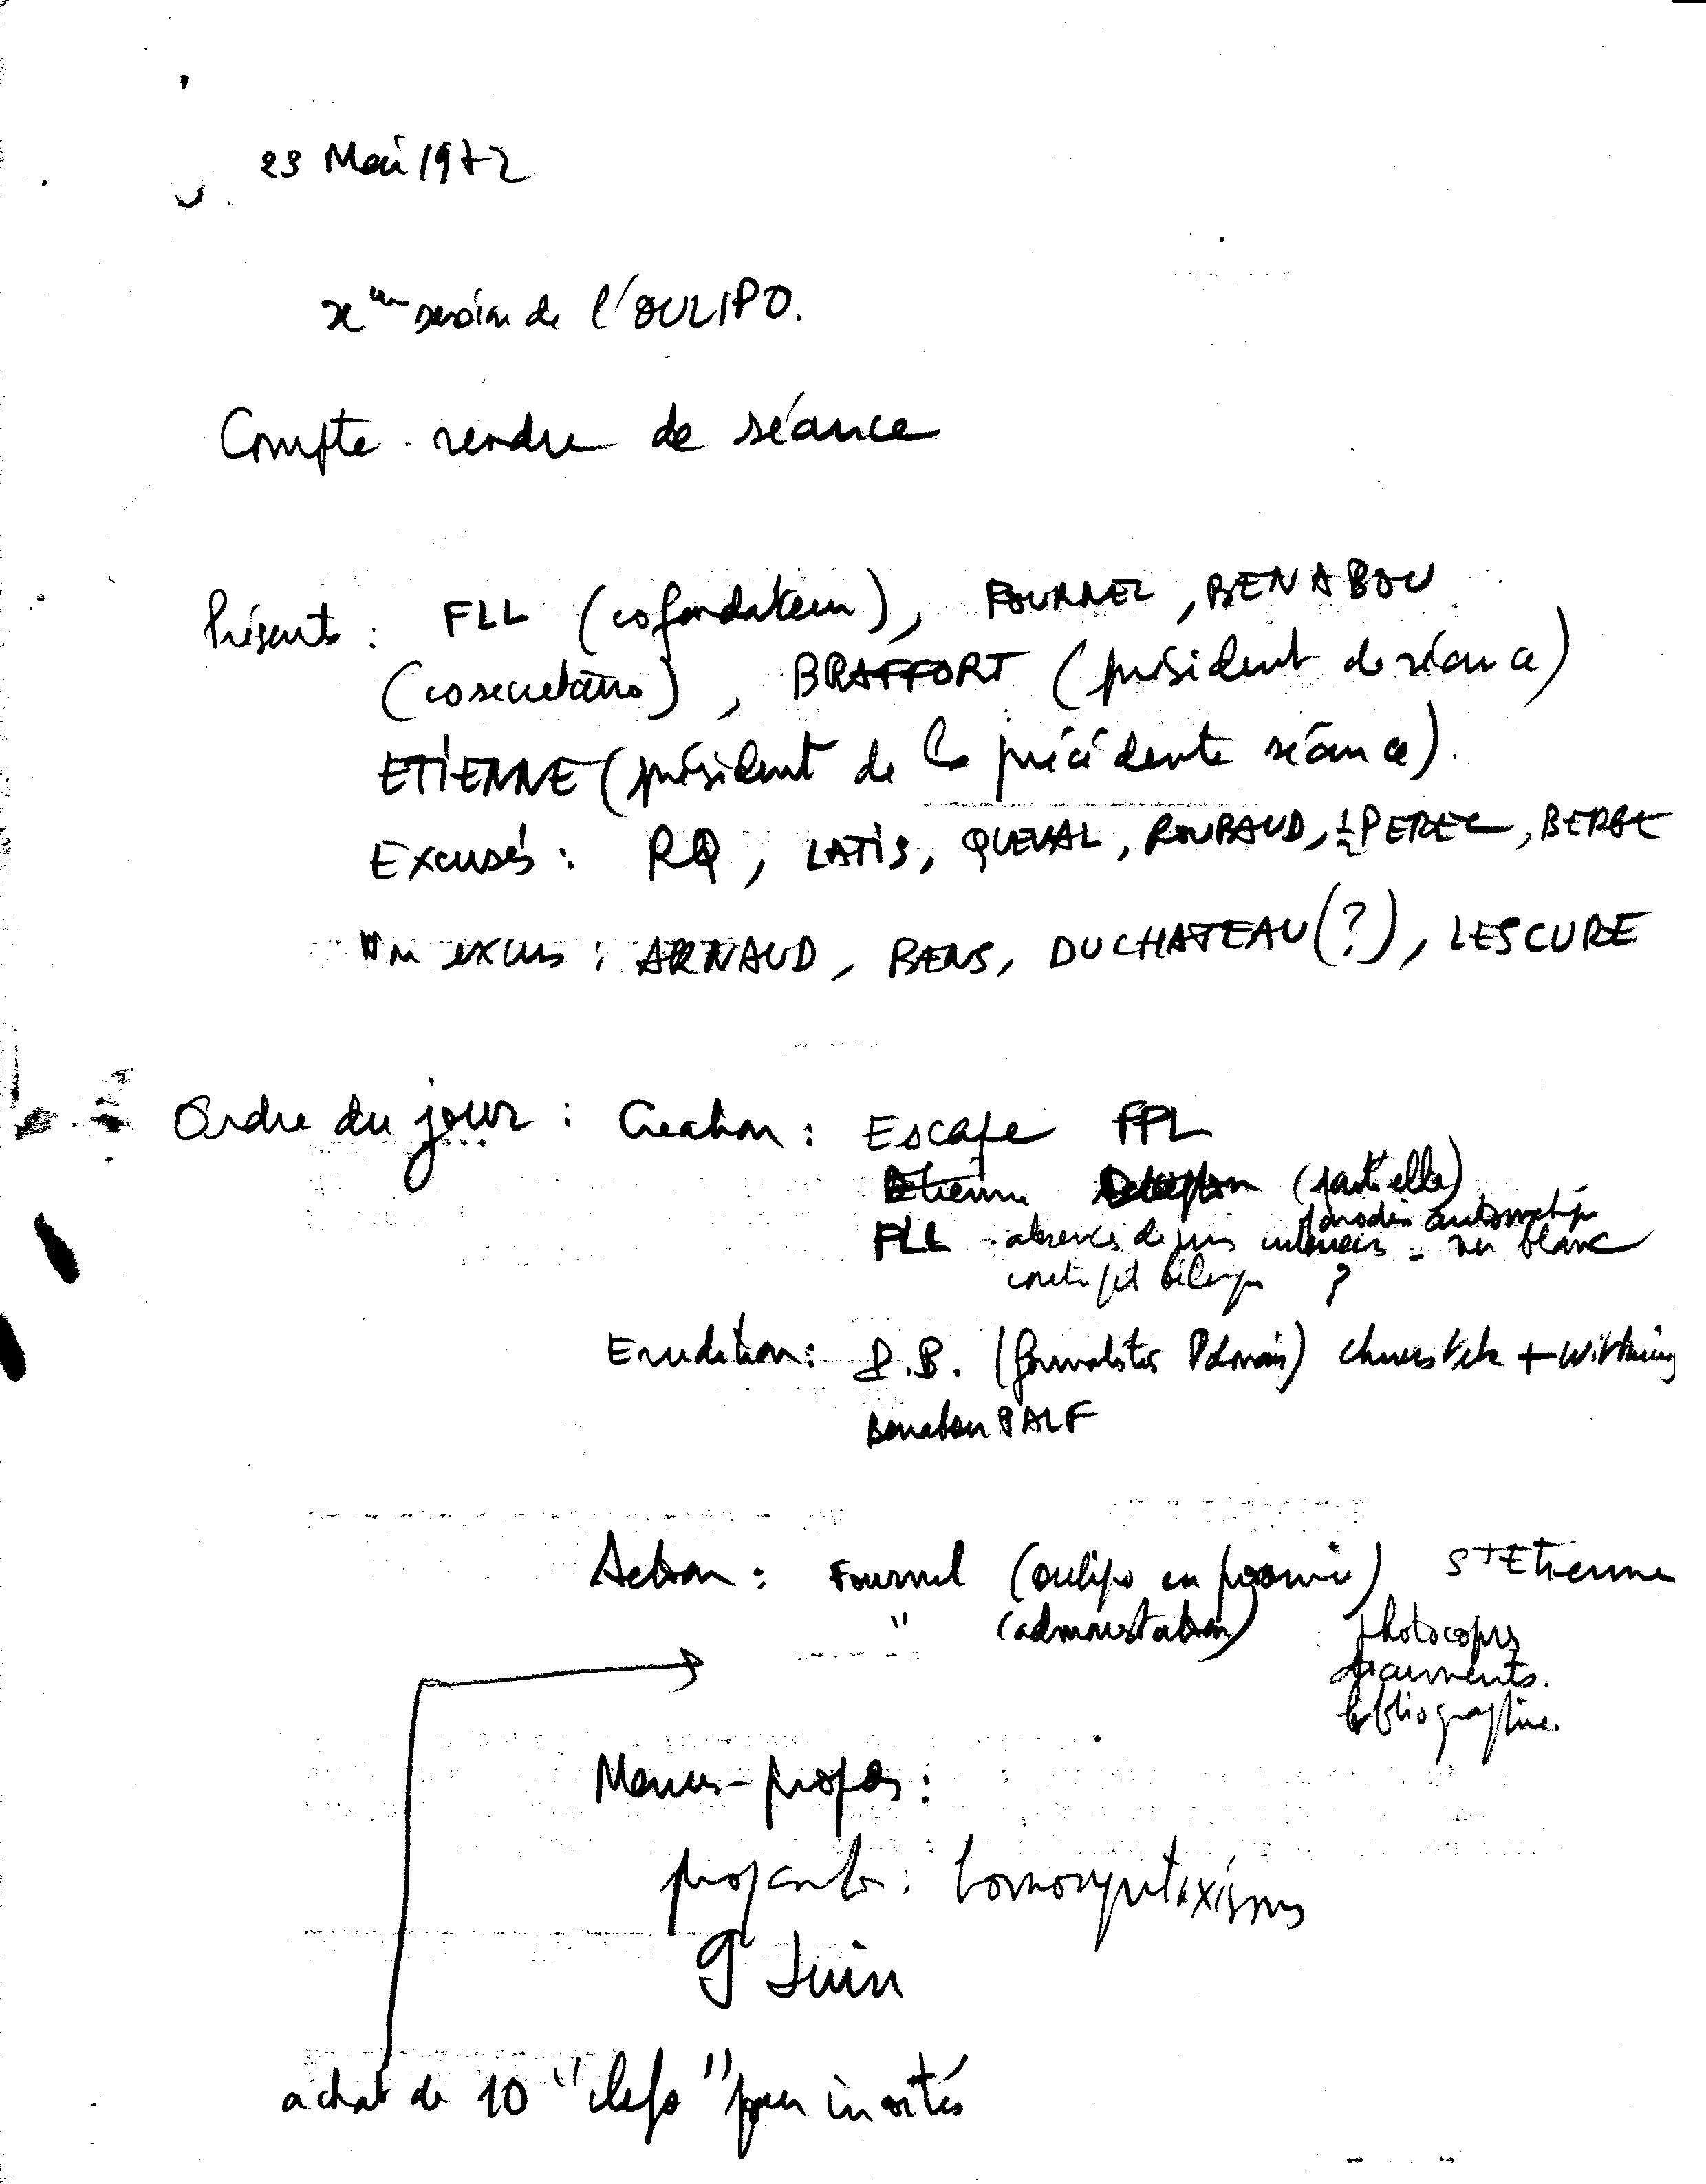 23 Mai 1972
session de l'OULIPO.
Compte-rendu de séance
Présents : FLL (cofondateur), FOURNEL, BENABOU
(cosecrétaires), BRAFFORT (président de séance)
ETIENNE (président de la précédente séance).
Excusés : RQ, LATIS, QUEVAL, ROUBAUD, PEREC, BERGE
Non excusés : ARNAUD, BENS, DUCHATEAU (?), LESCURE
Ordre du jour : Création : Escape FPL
Etienne (partielle)
parodie automatique
FLL - absences de - vers blanc
bilingue ?
Erudition : P.B. (formalistes
Benabou PALF
Action : Fournel (oulipo en St Etienne
" (administration) photocopies
documents.
bibliographie.
Menus-propos :
homosyntaxismes
9 Juin
achat de 10 "clefs" pour invités